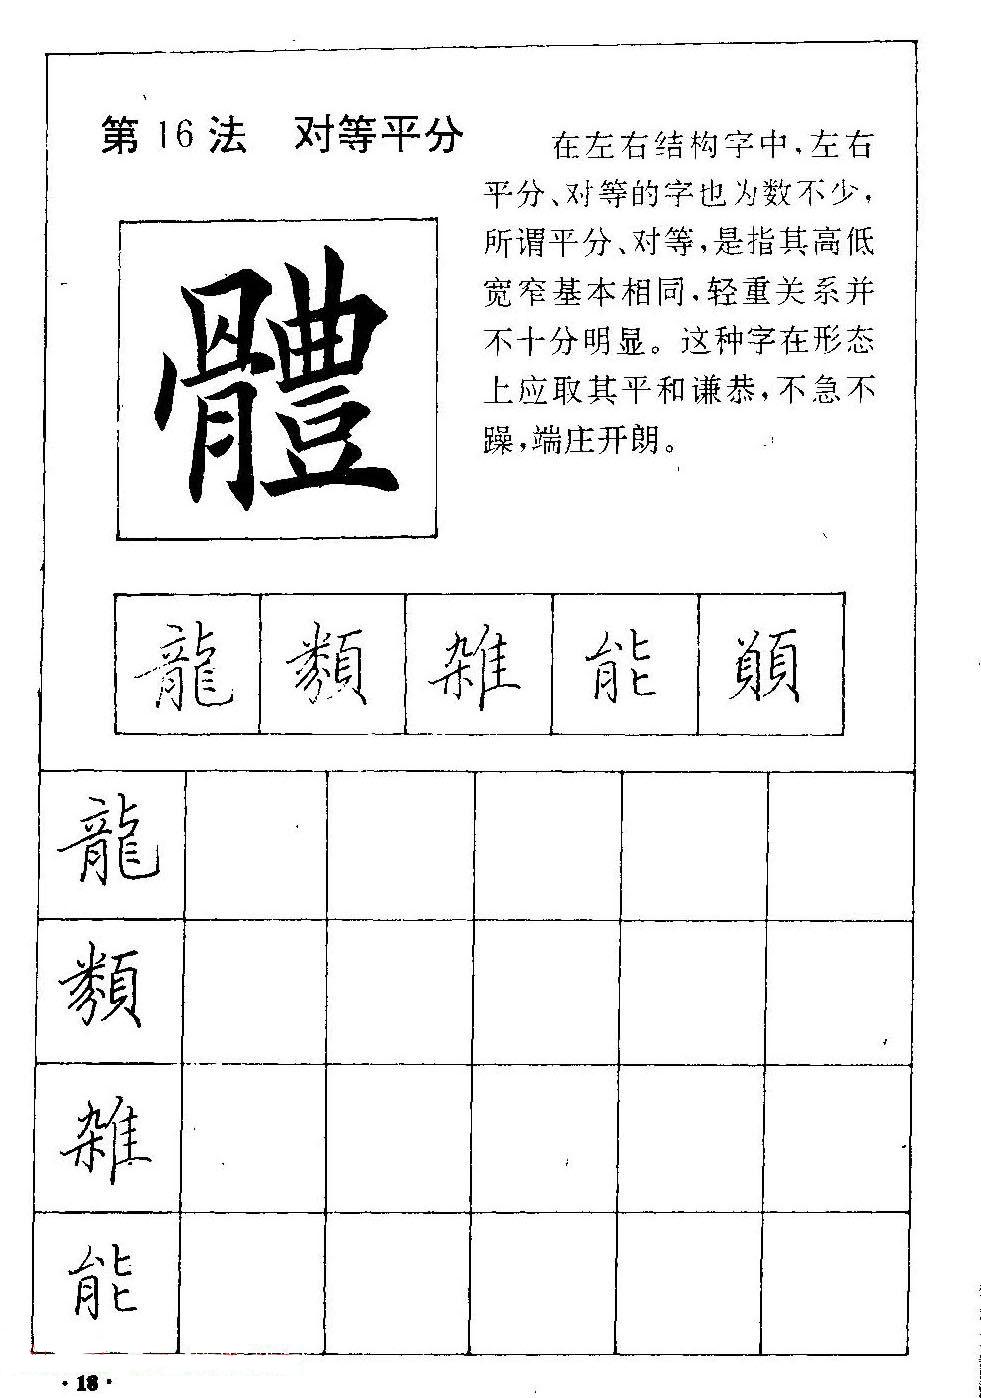 第16法 对等平分
在左右结构字中，左右
平分、对等的字也为数不少，
所谓平分、对等，是指其高低
宽窄基本相同，轻重关系并
不十分明显。这种字在形态
上应取其平和谦恭，不急不
躁，端庄开朗。
體
龍 類 雑 能 顛
龍
類
雑
能
·18·